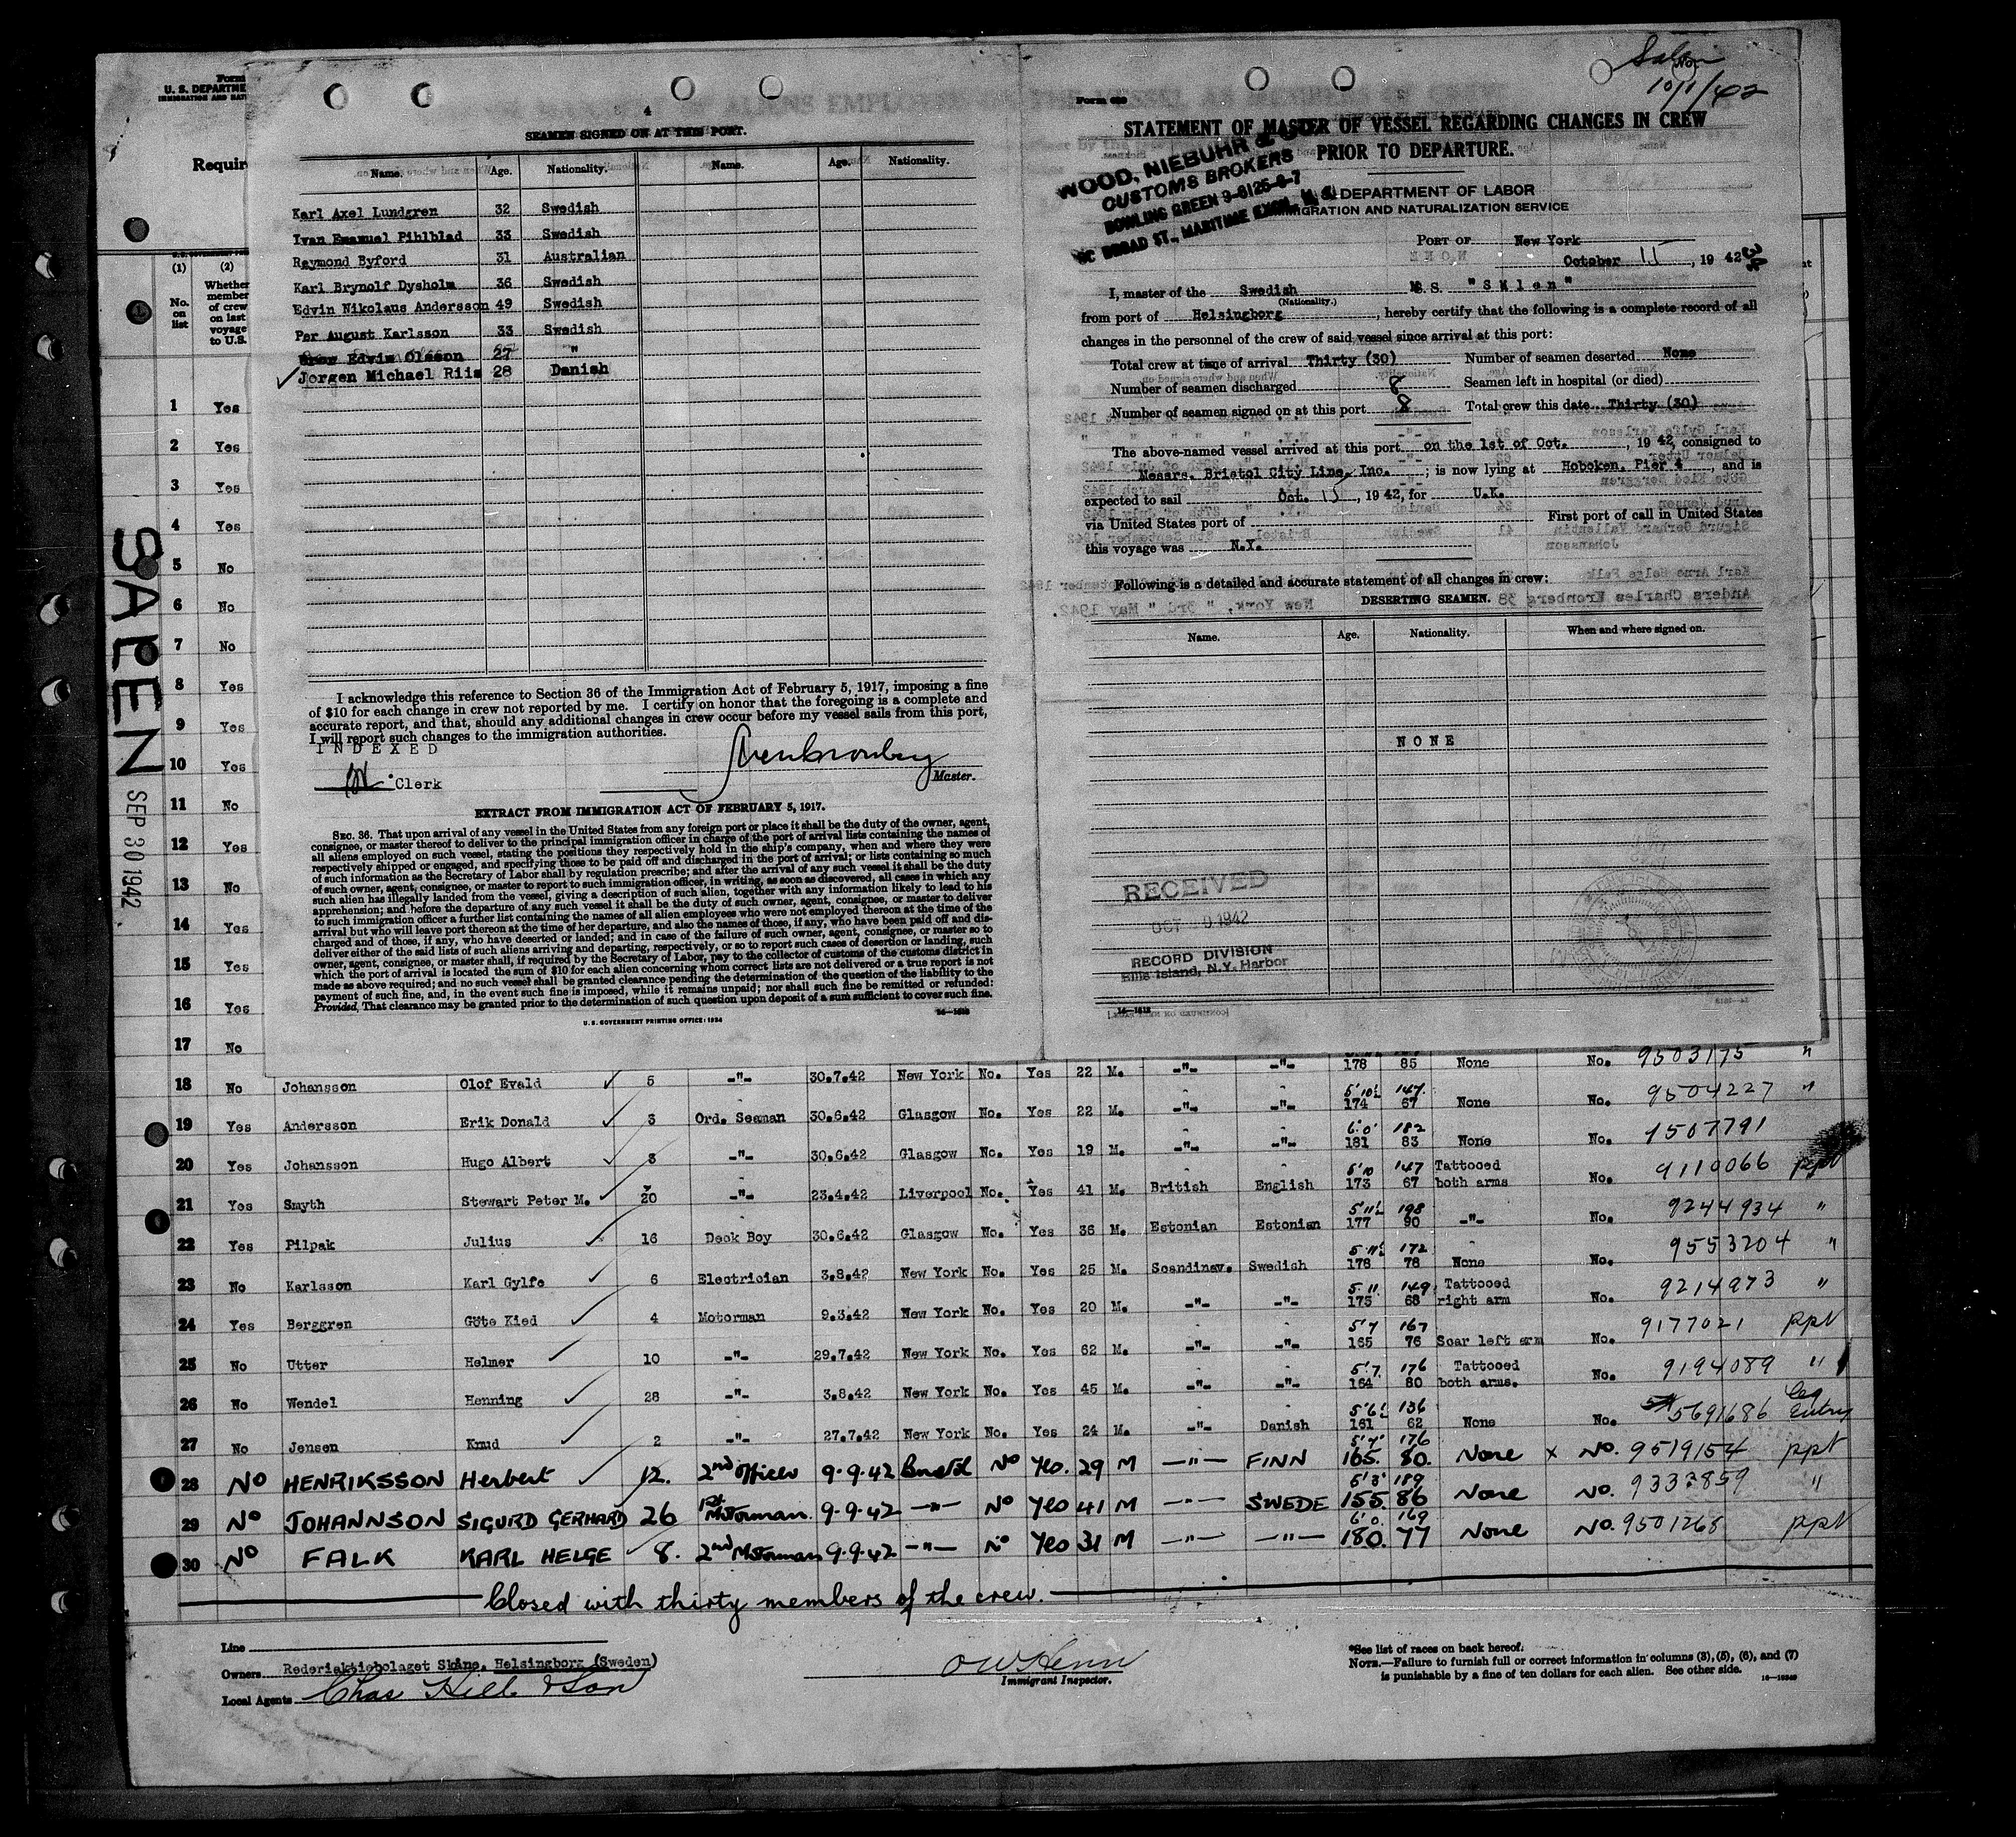 Form
U. S. DEPARTME
IMMIGRATION AND NAT
Requir
4
SEAMEN SIGNED ON AT THIS PORT.
Name. Age. Nationality. Name. Age. Nationality.
Karl Axel Lundgren 32 Swedish
Ivan Emanuel Pihlblad 33 Swedish
Raymond Byford 31 Australian
Karl Brynolf Dysholm 36 Swedish
Edvin Nikolaus Andersson 49 Swedish
Per August Karlsson 33 Swedish
Edvin Olsson 27 "
Jorgen Michael Riis 28 Danish
I acknowledge this reference to Section 36 of the Immigration Act of February 5, 1917, imposing a fine
of $10 for each change in crew not reported by me. I certify on honor that the foregoing is a complete and
accurate report, and that, should any additional changes in crew occur before my vessel sails from this port,
I will report such changes to the immigration authorities.
INDEXED
Clerk
Master.
EXTRACT FROM IMMIGRATION ACT OF FEBRUARY 5, 1917.
SEC. 36. That upon arrival of any vessel in the United States from any foreign port or place it shall be the duty of the owner, agent,
consignee, or master thereof to deliver to the principal immigration officer in charge of the port of arrival lists containing the names of
all aliens employed on such vessel, stating the positions they respectively hold in the ship's company, when and where they were
respectively shipped or engaged, and specifying those to be paid off and discharged in the port of arrival; or lists containing so much
of such information as the Secretary of Labor shall by regulation prescribe; and after the arrival of any such vessel it shall be the duty
of such owner, agent, consignee, or master to report to such immigration officer, in writing, as soon as discovered, all cases in which any
such alien has illegally landed from the vessel, giving a description of such alien, together with any information likely to lead to his
apprehension; and before the departure of any such vessel it shall be the duty of such owner, agent, consignee, or master to deliver
to such immigration officer a further list containing the names of all alien employees who were not employed thereon at the time of the
arrival but who will leave port thereon at the time of her departure, and also the names of those, if any, who have been paid off and dis-
charged and of those, if any, who have deserted or landed; and in case of the failure of such owner, agent, consignee, or master so to
deliver either of the said lists of such aliens arriving and departing, respectively, or so to report such cases of desertion or landing, such
owner, agent, consignee, or master shall, if required by the Secretary of Labor, pay to the collector of customs of the customs district in
which the port of arrival is located the sum of $10 for each alien concerning whom correct lists are not delivered or a true report is not
made as above required; and no such vessel shall be granted clearance pending the determination of the question of the liability to the
payment of such fine, and, in the event such fine is imposed, while it remains unpaid; nor shall such fine be remitted or refunded:
Provided, That clearance may be granted prior to the determination of such question upon deposit of a sum sufficient to cover such fine.
U. S. GOVERNMENT PRINTING OFFICE: 1934 14—1618
10/1/42
Form 689
STATEMENT OF MASTER OF VESSEL REGARDING CHANGES IN CREW
PRIOR TO DEPARTURE.
WOOD, NIEBUHR & CO
CUSTOMS BROKERS
BOWLING GREEN 9-8125-6-7
BROAD ST., MARITIME EXCH. N. Y.
DEPARTMENT OF LABOR
IMMIGRATION AND NATURALIZATION SERVICE
PORT OF New York
October 15, 1942
I, master of the Swedish M.S. "SKlen"
(Nationality.)
from port of Helsingborg, hereby certify that the following is a complete record of all
changes in the personnel of the crew of said vessel since arrival at this port:
Total crew at time of arrival Thirty (30) Number of seamen deserted None
Number of seamen discharged 8 Seamen left in hospital (or died)
Number of seamen signed on at this port 8 Total crew this date Thirty (30)
The above-named vessel arrived at this port on the 1st of Oct., 1942, consigned to
Messrs. Bristol City Line, Inc.; is now lying at Hoboken, Pier 4, and is
expected to sail Oct. 15, 1942, for U.K.
via United States port of First port of call in United States
this voyage was N.Y.
Following is a detailed and accurate statement of all changes in crew:
DESERTING SEAMEN.
Name. Age. Nationality. When and where signed on.
NONE
RECEIVED
OCT 9 1942
RECORD DIVISION
Ellis Island, N.Y. Harbor
14—1618
SAPEN
SEP 30 1942
(1) (2)
No. on list
Whether member of crew on last voyage to U.S.
1 Yes
2 Yes
3 Yes
4 Yes
5 No
6 No
7 No
8 Yes
9 Yes
10 Yes
11 No
12 Yes
13 No
14 Yes
15 Yes
16 Yes
17 No 178 85 None No. 9503175 "
18 No Johansson Olof Evald 5 -"- 30.7.42 New York No. Yes 22 M. -"- -"- 5'10½ 147 174 67 None No. 9504227 "
19 Yes Andersson Erik Donald 3 Ord. Seaman 30.6.42 Glasgow No. Yes 22 M. -"- -"- 6'0' 182 181 83 None No. 9507791
20 Yes Johansson Hugo Albert 3 -"- 30.6.42 Glasgow No. Yes 19 M. -"- -"- 5'10 147 173 67 Tattooed both arms No. 9110066 ppt
21 Yes Smyth Stewart Peter M. 20 -"- 23.4.42 Liverpool No. Yes 41 M. British English 5'11½ 198 177 90 -"- No. 9244934 "
22 Yes Pilpak Julius 16 Deck Boy 30.6.42 Glasgow No. Yes 36 M. Estonian Estonian 5'11½ 172 178 78 None No. 9553204 "
23 No Karlsson Karl Gylfe 6 Electrician 3.8.42 New York No. Yes 25 M. Scandinav. Swedish 5'11 149 175 68 Tattooed right arm No. 9214973 "
24 Yes Berggren Göte Kied 4 Motorman 9.3.42 New York No. Yes 20 M. -"- -"- 5'7 167 165 76 Scar left arm No. 9177021 ppt
25 No Utter Helmer 10 -"- 29.7.42 New York No. Yes 62 M. -"- -"- 5'7 176 164 80 Tattooed both arms. No. 9194089 "
26 No Wendel Henning 28 -"- 3.8.42 New York No. Yes 45 M. -"- -"- 5'6½ 136 161 62 None No. 5691686 Entry
27 No Jensen Knud 2 -"- 27.7.42 New York No. Yes 24 M. -"- Danish 5'7' 176
28 No HENRIKSSON Herbert 12. 2nd Officer 9.9.42 Bristol No Yes. 29 M -"- FINN 165. 80. None x No. 9519154 ppt
29 No JOHANNSON SIGURD GERHARD 26 1st Motorman. 9.9.42 -"- No Yes 41 M -"- SWEDE 5'3' 189 155. 86 None No. 9333859 "
30 No FALK KARL HELGE 8. 2nd Motorman 9.9.42 -"- No Yes 31 M -"- -"- 6'0. 169 180. 77 None No. 9501268 ppt
Closed with thirty members of the crew.
Line
Owners Rederiaktiebolaget Skåne, Helsingborg (Sweden)
Local Agents Chas Hill & Son
Immigrant Inspector.
*See list of races on back hereof.
NOTE.—Failure to furnish full or correct information in columns (3), (5), (6), and (7)
is punishable by a fine of ten dollars for each alien. See other side.
16—10349